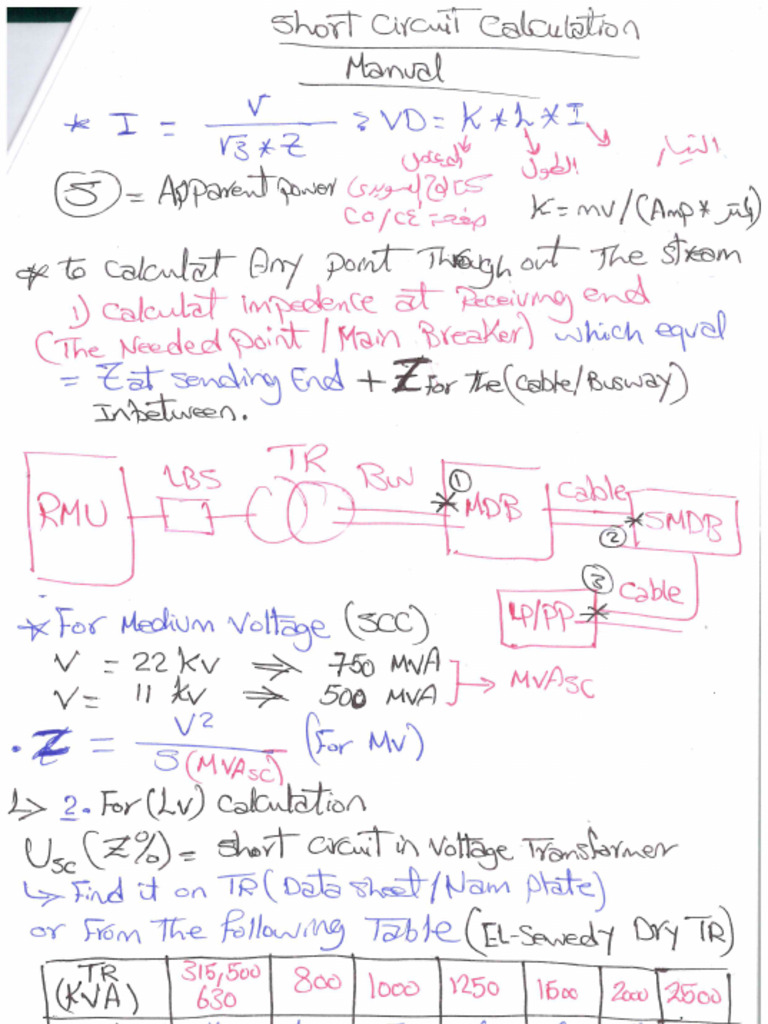 Short Circuit Calculation
Manual
* I = V / √3 * Z ; VD = K * L * I
المعامل الطول التيار
(S) = Apparent power
K = mv/(Amp * متر)
* to calculat Any point Through out The stream
1) calculat impedence at Receiving end
(The Needed point / Main Breaker) which equal
= Z at sending End + Z For the (cable/Busway)
Inbetween.
RMU LBS TR BW ① MDB cable ② SMDB
③ cable
LP/PP
* For Medium Voltage (SCC)
V = 22 KV ⇒ 750 MVA
V = 11 kv ⇒ 500 MVA
→ MVAsc
. Z = V² / S(MVAsc) (For MV)
↳ 2. For (Lv) calculation
Usc (Z%) = short circuit in voltage Transformer
↳ Find it on TR (Data sheet/Nam plate)
or From The following Table (El-Sewedy Dry TR)
TR (KVA) 315,500 630 800 1000 1250 1600 2000 2500